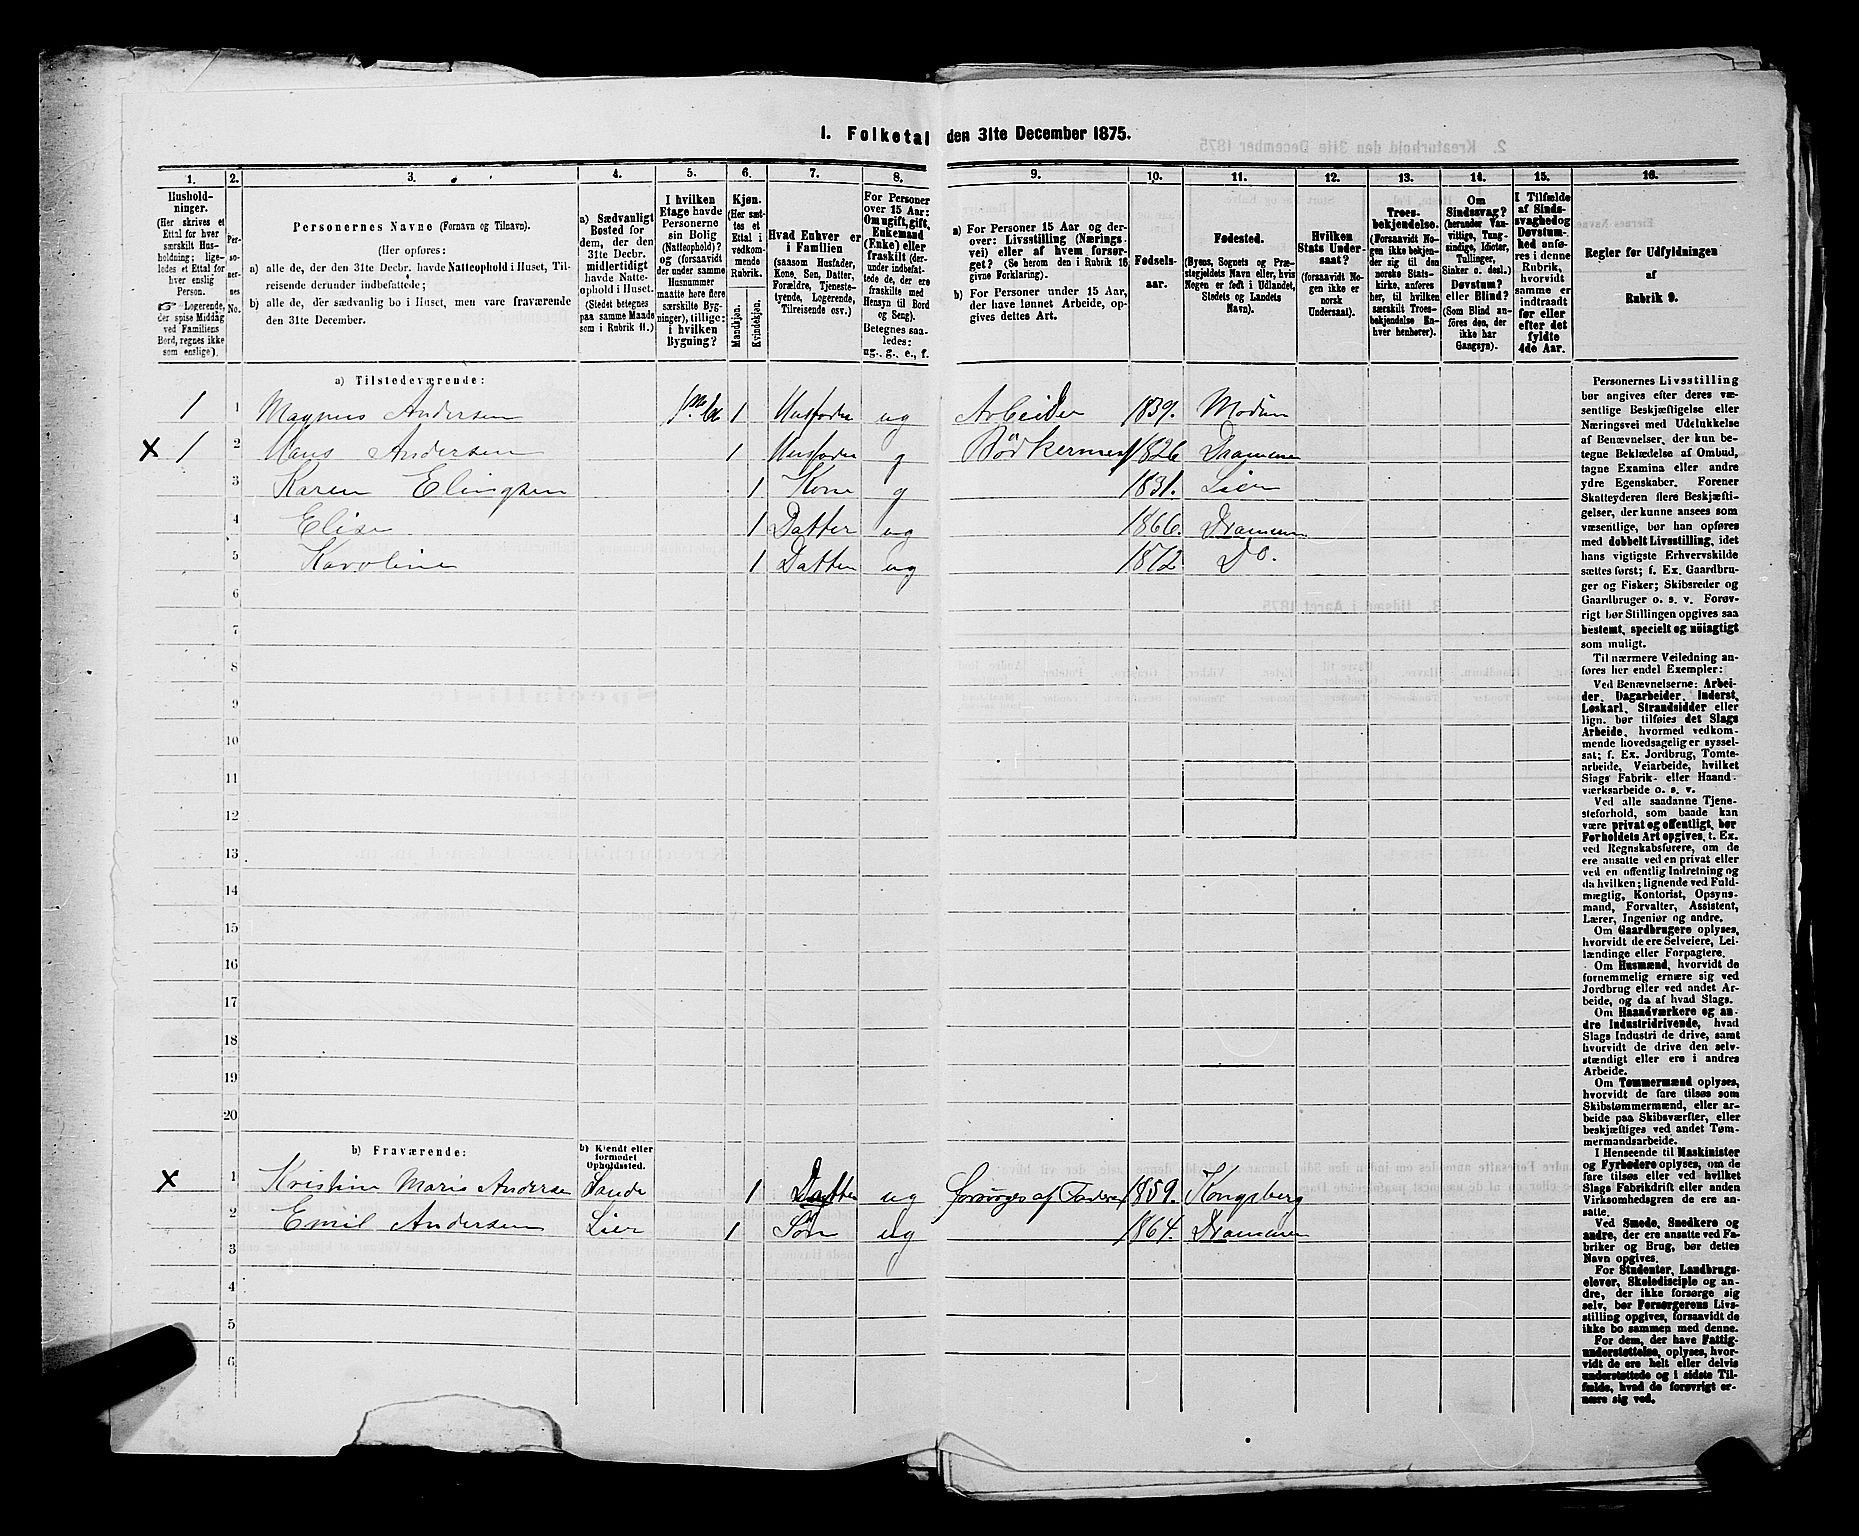 1. Folketal den 31te December 1875.
1. 2. 3. 4. 5. 6. 7. 8. 9. 10. 11. 12. 13. 14. 15. 16.
Hushold-
ninger.
(Her skrives et
Ettal for hver
særskilt Hus-
holdning; lige-
ledes et Ettal for
hver enslig
Person.
Logerende,
der spise Middag
ved Familiens
Bord, regnes ikke
som enslige).
Per-
so-
ner-
nes
No.
Personernes Navne (Fornavn og Tilnavn).
(Her opføres:
a) alle de, der den 31te Decbr. havde Natteophold i Huset, Til-
reisende derunder indbefattede;
b) alle de, der sædvanlig bo i Huset, men vare fraværende
den 31te December.
a) Sædvanligt
Bosted for
dem, der den
31te Decbr.
midlertidigt
havde Natte-
ophold i Huset.
(Stedet betegnes
paa samme Maade
som i Rubrik 11.)
I hvilken
Etage havde
Personerne
sin Bolig
(Natteophold)?
og (forsaavidt
der under samme
Husnummer
maatte høre flere
særskilte Byg-
ninger), tillige:
i hvilken
Bygning?
Kjøn.
(Her sæt-
tes et
Ettal i
vedkom-
mende
Rubrik.
Mandkjøn.
Kvindekjøn.
Hvad Enhver er
i Familien
(saasom Husfader,
Kone, Søn, Datter,
Forældre, Tjeneste-
tyende, Logerende,
Tilreisende osv.)
For Personer
over 15 Aar:
Om ugift, gift,
Enkemand
(Enke) eller
fraskilt (der-
under indbefat-
tede de, der ere
fraskilte med
Hensyn til Bord
og Seng).
Betegnes saa-
ledes:
ug., g., e., f.
a) For Personer 15 Aar og der-
over: Livsstilling (Nærings-
vei) eller af hvem forsør-
get? (Se herom den i Rubrik 16
givne Forklaring).
b) For Personer under 15 Aar,
der have lønnet Arbeide, op-
gives dettes Art.
Fødsels-
aar.
Fødested.
(Byens, Sognets og Præ-
stegjeldets Navn eller, hvis
Nogen er født i Udlandet,
Stedets og Landets
Navn).
Hvilken
Stats Under-
saat?
(forsaavidt No-
gen ikke er
norsk
Undersaat).
Troes-
bekjendelse.
(Forsaavidt No-
gen ikke bekjen-
der sig til den
norske Stats-
kirke, anføres
her, til hvilken
særskilt Troes-
bekjendelse En-
hver henhører).
Om
Sindssvag?
(herunder Van-
vittige, Tung-
sindige, Idioter,
Tullinger,
Sinker o. desl.)
Døvstum?
eller Blind?
(Som Blind an-
føres den, der
ikke har
Gangsyn).
I Tilfælde
af Sinds-
svaghed og
Døvstum-
hed anfø-
res i denne
Rubrik,
hvorvidt
samme er
indtraadt
før eller
efter det
fyldte
4de Aar.
Regler før Udfyldningen
af
Rubrik 9.
a) Tilstedeværende:
1 1 Magnus Andersen 1 Husfader ug Arbeider 1839. Modum
X 1 2 Hans Andersen 1 Husfader g 1826 Drammen
3 Karen Elingsen 1 Kone g 1831. Lier
4 Elise 1 Datter ug 1866. Drammen
5 Karoline 1 Datter ug 1872 Do.
6
7
8
9
10
11
12
13
14
15
16
17
18
19
20
b) Fraværende:
b) Kjendt eller
formodet
Opholdssted.
X 1 Kristine Marie Andersen Sande 1 Datter ug forsørges af Faderen 1859. Kongsberg
2 Emil Andersen Lier 1 Søn ug 1864. Drammen
3
4
5
6
Personernes Livsstilling
bør angives efter deres væ-
sentlige Beskjæftigelse eller
Næringsvei med Udelukkelse
af Benævnelser, der kun be-
tegne Beklædelse af Ombud,
tagne Examina eller andre
ydre Egenskaber. Forener
Skatteyderen flere Beskjæfti-
gelser, der kunne ansees som
væsentlige, bør han opføres
med dobbelt Livsstilling, idet
hans vigtigste Erhvervskilde
sættes først; f. Ex. Gaardbru-
ger og Fisker; Skibsreder og
Gaardbruger o. s. v. Forøv-
rigt bør Stillingen opgives saa
bestemt, specielt og nöiagtigt
som muligt.
Til nærmere Veiledning an-
føres her endel Exempler:
Ved Benævnelserne: Arbei-
der, Dagarbeider, Inderst,
Løskarl, Strandsidder eller
lign. bør tilføies det Slags
Arbeide, hvormed vedkom-
mende hovedsagelig er syssel-
sat; f. Ex. Jordbrug, Tomte-
arbeide, Veiarbeide, hvilket
Slags Fabrik- eller Haand-
værksarbeide o. s. v.
Ved alle saadanne Tjene-
steforhold, som baade kan
være privat og offentligt, bør
Forholdets Art opgives, t. Ex.
ved Regnskabsførere, om de
ere ansatte ved en privat eller
ved en offentlig Indretning og
da hvilken; lignende ved Fuld-
mægtig, Kontorist, Opsyns-
mand, Forvalter, Assistent,
Lærer, Ingeniør og andre.
Om Gaardbrugere oplyses,
hvorvidt de ere Selveiere, Lei-
lændinge eller Forpagtere.
Om Husmænd, hvorvidt de
fornemmelig ernære sig ved
Jordbrug eller ved andet Ar-
beide, og da af hvad Slags.
Om Haandværkere og an-
dre Industridrivende, hvad
Slags Industri de drive, samt
hvorvidt de drive den selv-
stændigt eller ere i andres
Arbeide.
Om Tømmermænd oplyses,
hvorvidt de fare tilsøs som
Skibstømmermænd, eller ar-
beide paa Skibsværfter, eller
beskjæftiges ved andet Tøm-
mermandsarbeide.
I Henseende til Maskinister
og Fyrbødere oplyses, om de
fare tilsøs eller ved hvilket
Slags Fabrikdrift eller anden
Virksomhedsgren de ere an-
satte.
Ved Smede, Snedkere og
andre, der ere ansatte ved Fa-
briker og Brug, bør dettes
Navn opgives.
For Studenter, Landbrugs-
elever, Skoledisciple og an-
dre, der ikke forsørge sig
selv, bør Forsørgerens Livs-
stilling opgives, forsaavidt de
ikke bo sammen med denne.
For dem, der have Fattig-
understøttelse, oplyses, hvor-
vidt de ere helt eller delvis
understøttede og i sidste Til-
fælde, hvad de forøvrigt er-
nære sig ved.